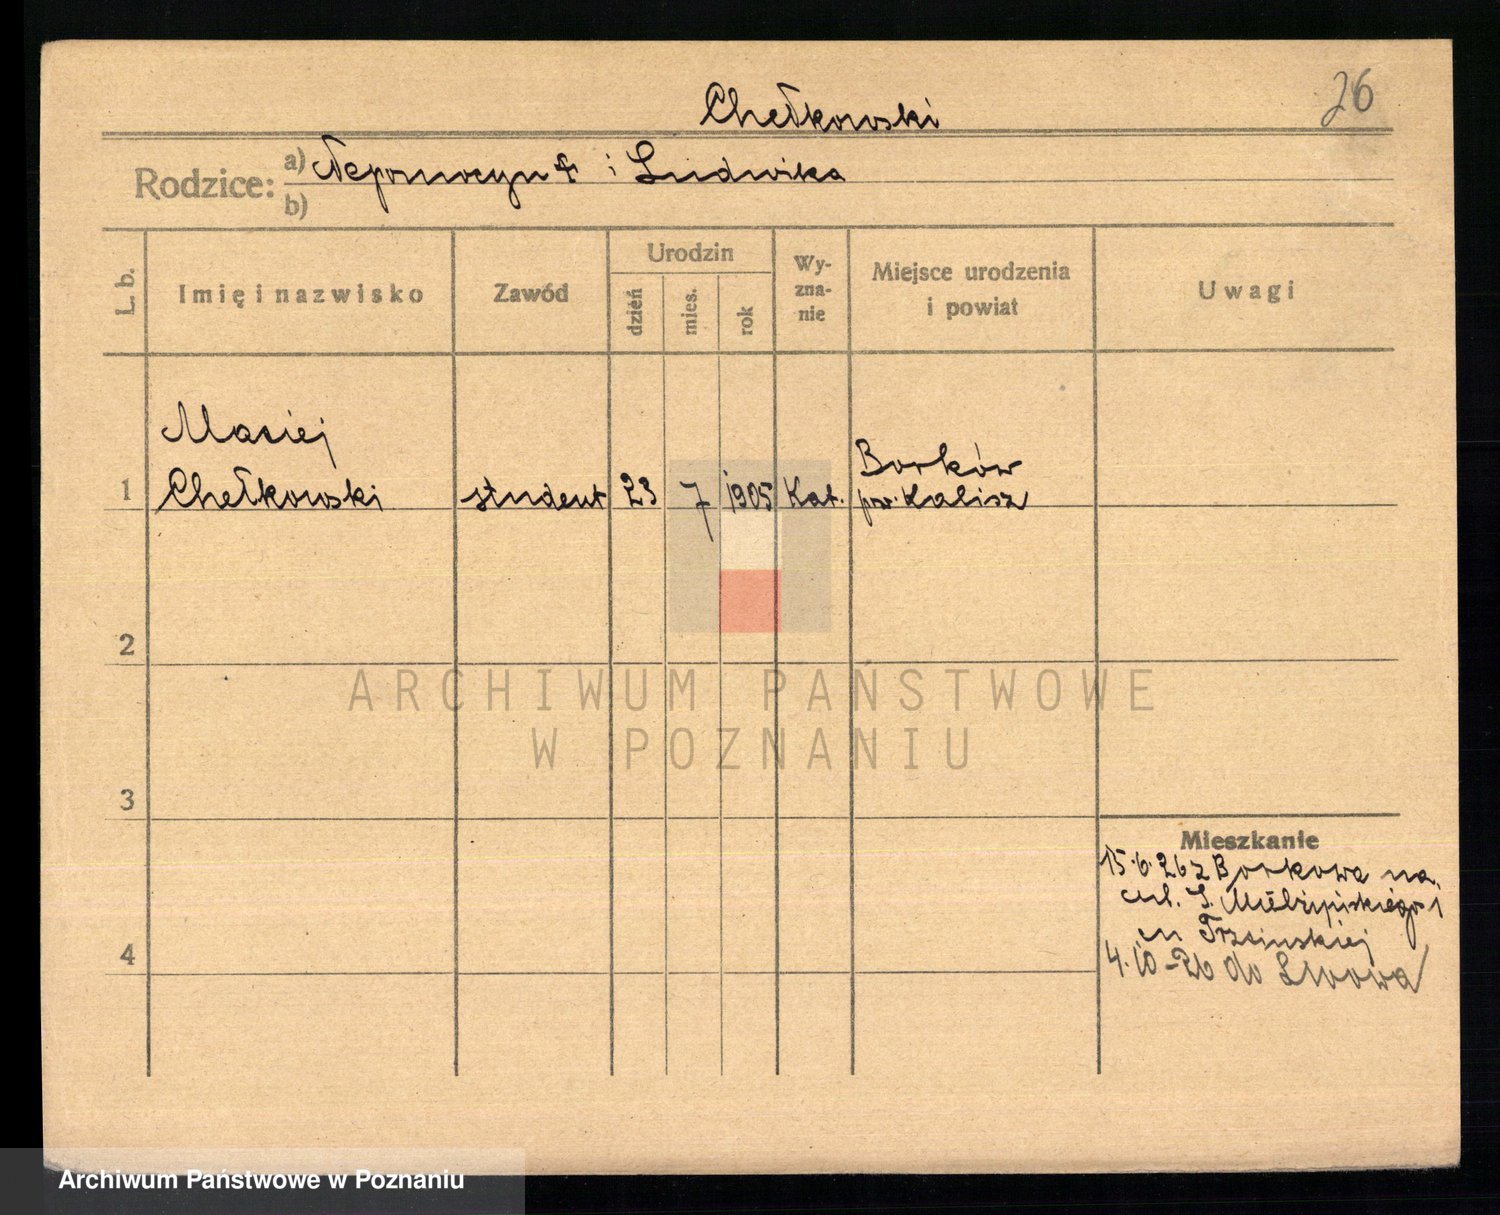 26
Chełkowski
Rodzice: a) Nepomucyn † i Ludwika
b)
L. b.
Imię i nazwisko
Zawód
Urodzin
dzień
mies.
rok
Wy-
zna-
nie
Miejsce urodzenia
i powiat
Uwagi
Maciej
1 Chełkowski student 23 7 1905 Kat. Borków
pow. Kalisz
2
3
4
Mieszkanie
15.6.26 z Borkowa na
ul. S. Mielżyńskiego 1
u Trzcinskiej
4.10-26 do Lwowa
ARCHIWUM PAŃSTWOWE
W POZNANIU
Archiwum Państwowe w Poznaniu